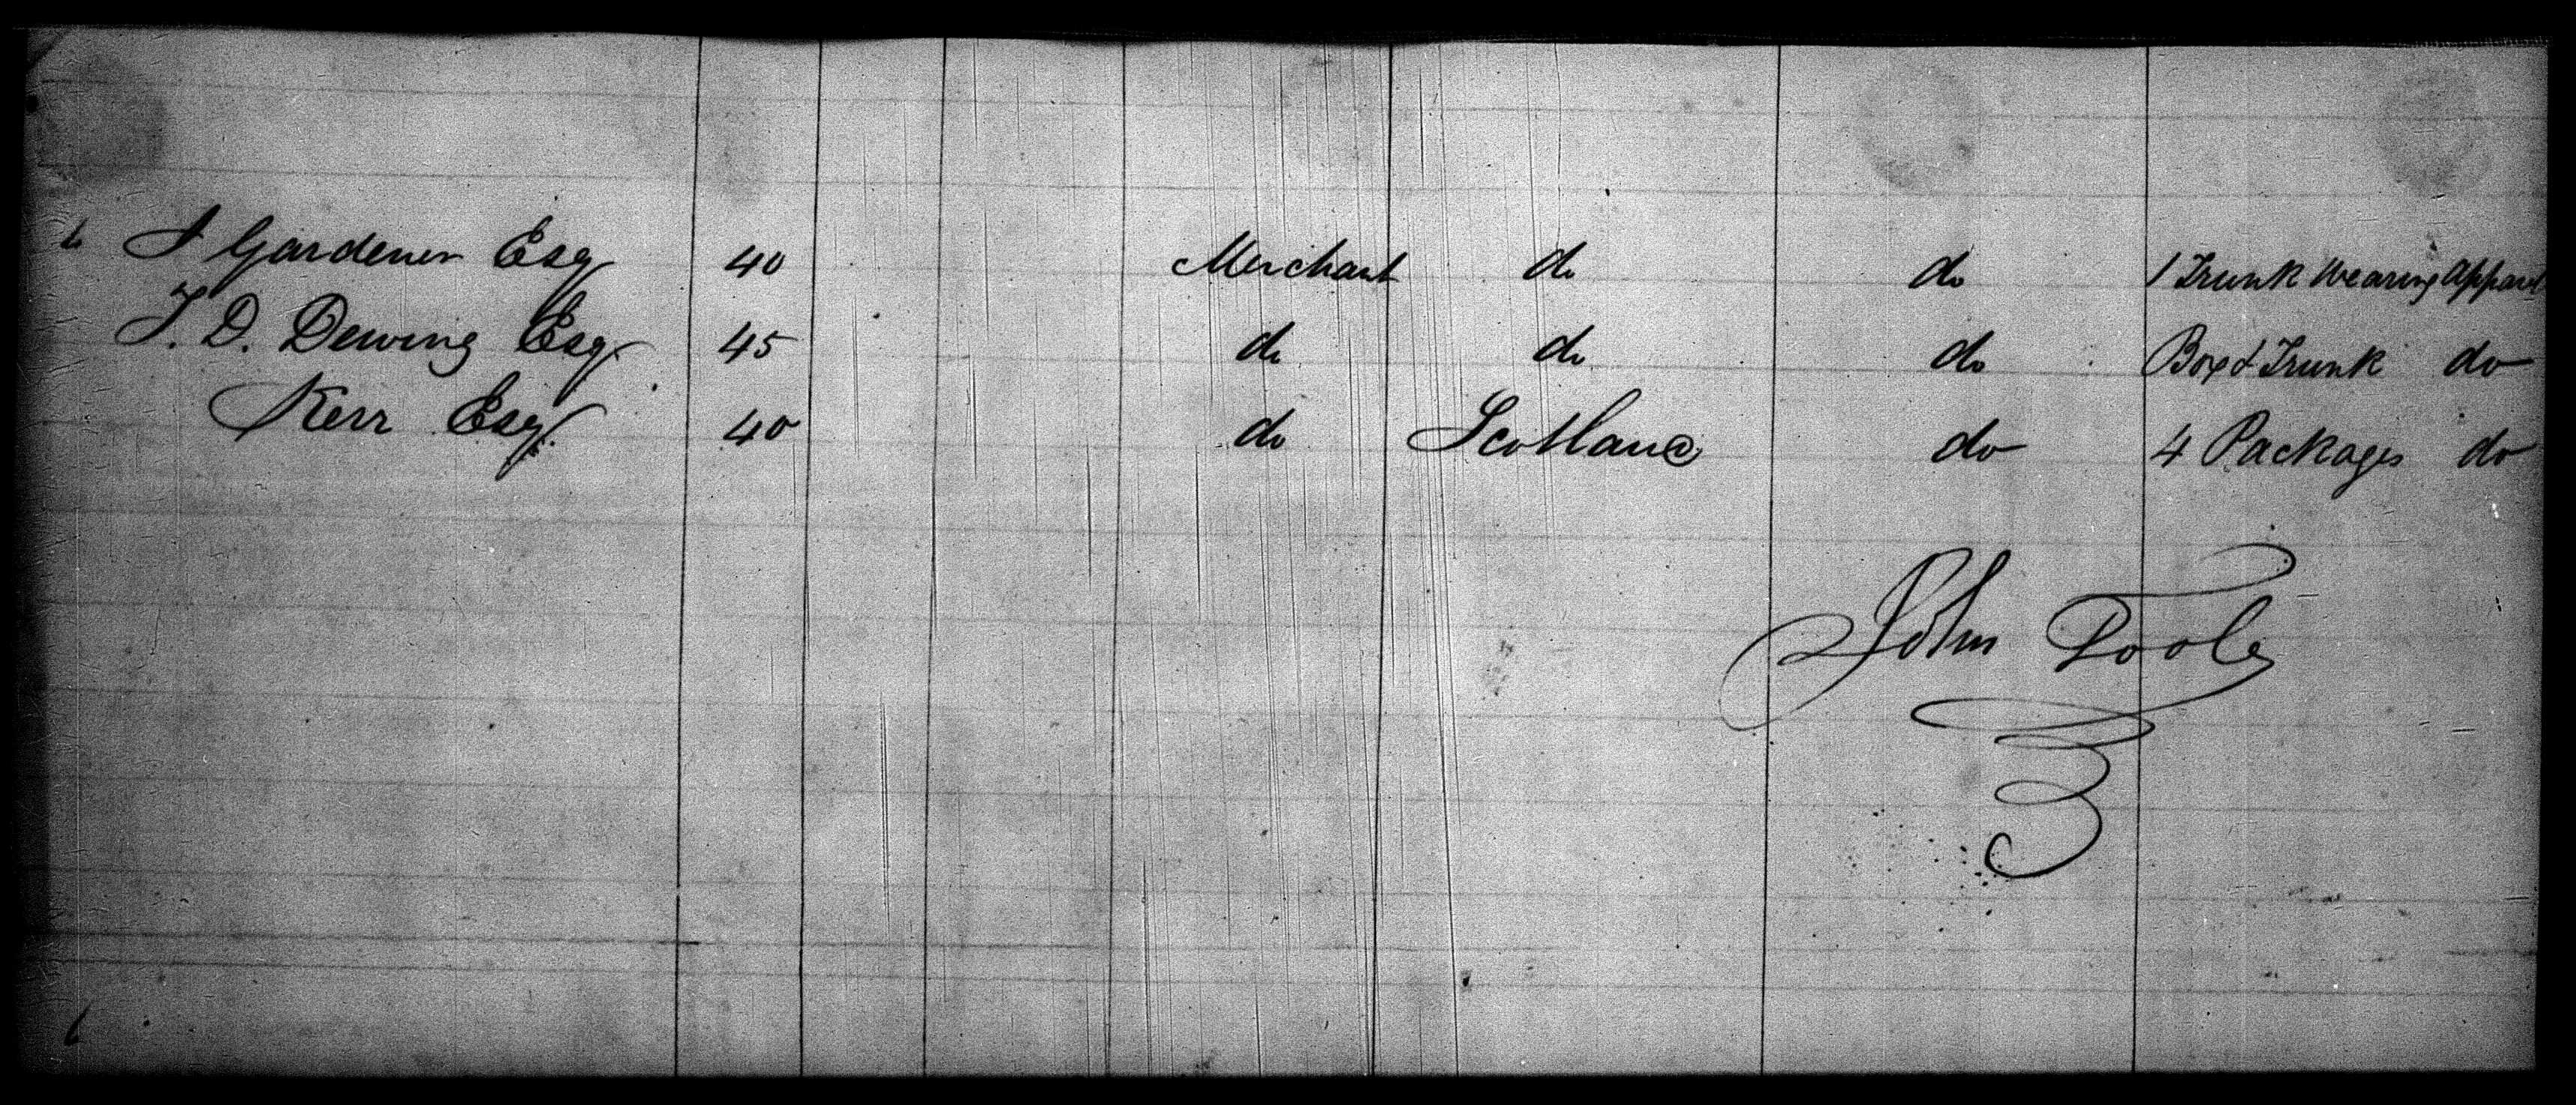 J Gardener Esq 40 Merchant do do 1 Trunk Wearing Apparel
J. D. Dewing Esq. 45 do do do Box & Trunk do
Kerr Esq. 40 do Scotland do 4 Packages do
John Poole